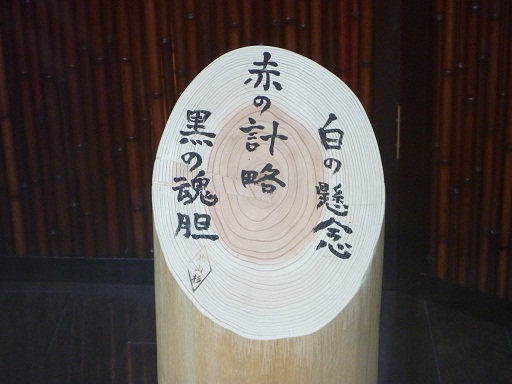 白の懸念
赤の計略
黒の魂胆